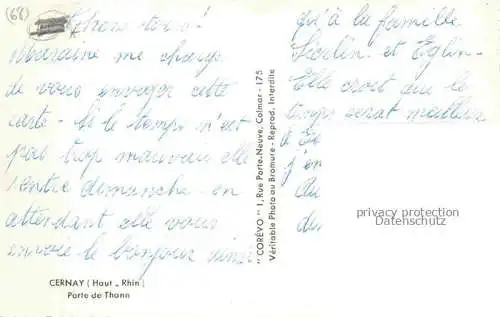 (68)
Marraine me charge
de vous envoyer cette
carte - Si le temps n'est
pas trop mauvais elle
rentre dimanche - en
attendant elle vous
envoie le bonjour ainsi
CERNAY (Haut-Rhin)
Porte de Thann
"CORÉVO" 1, Rue Porte-Neuve, Colmar - 175
Véritable Photo au Bromure - Reprod. Interdite
qu'à la famille
et Eglin -
Elle croit que le
temps serait meilleur
à
j'en
Au
du
privacy protection
Datenschutz